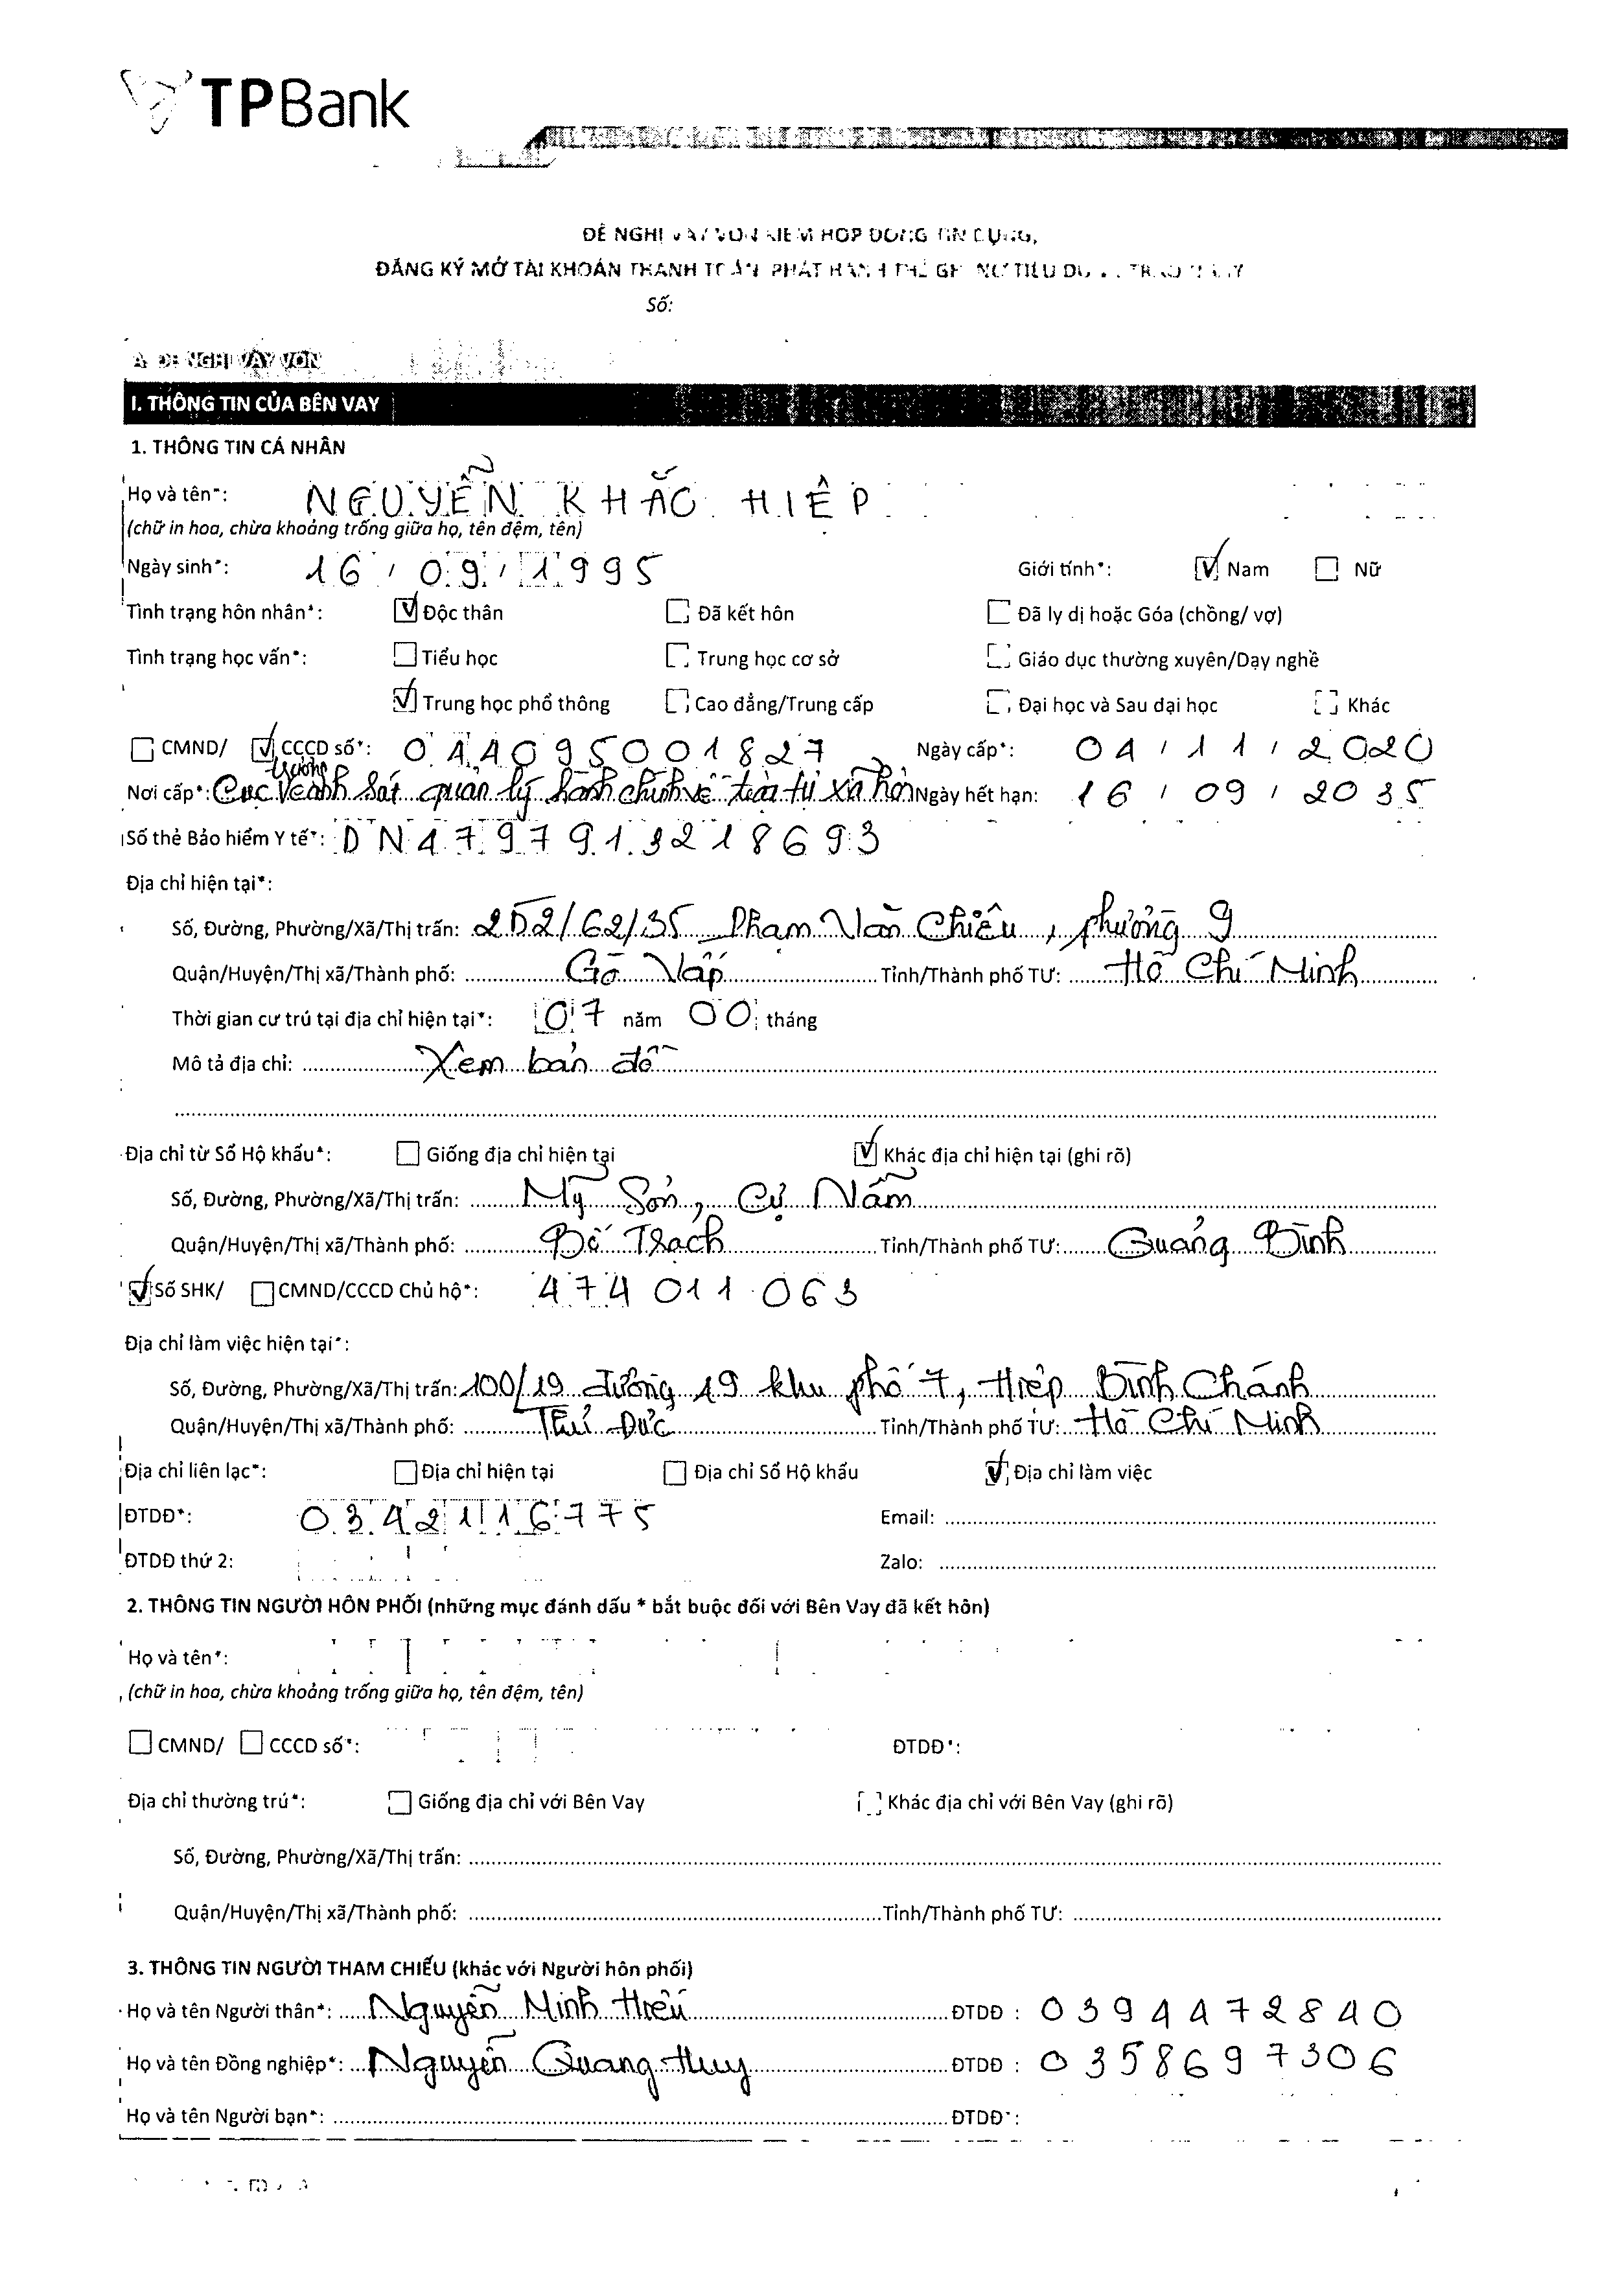 TPBank
ĐỀ NGHỊ VAY VỐN KIÊM HỢP ĐỒNG TÍN DỤNG,
ĐĂNG KÝ MỞ TÀI KHOẢN THANH TOÁN, PHÁT HÀNH THẺ GHI NỢ
Số:
A. ĐỀ NGHỊ VAY VỐN
I. THÔNG TIN CỦA BÊN VAY
1. THÔNG TIN CÁ NHÂN
Họ và tên*: NGUYỄN KHẮC HIỆP
(chữ in hoa, chừa khoảng trống giữa họ, tên đệm, tên)
Ngày sinh*: 16 / 09 / 1995 Giới tính*: Nam Nữ
Tình trạng hôn nhân*: Độc thân Đã kết hôn Đã ly dị hoặc Góa (chồng/ vợ)
Tình trạng học vấn*: Tiểu học Trung học cơ sở Giáo dục thường xuyên/Dạy nghề
Trung học phổ thông Cao đẳng/Trung cấp Đại học và Sau đại học Khác
CMND/ CCCD số*: 044095001827 Ngày cấp*: 04 / 11 / 2020
Nơi cấp*: Cục trưởng cảnh sát quản lý hành chính về trật tự xã hội Ngày hết hạn: 16 / 09 / 2035
Số thẻ Bảo hiểm Y tế*: DN4797913218693
Địa chỉ hiện tại*:
Số, Đường, Phường/Xã/Thị trấn: 252/62/35 Phạm Văn Chiêu, phường 9
Quận/Huyện/Thị xã/Thành phố: Gò Vấp Tỉnh/Thành phố TƯ: Hồ Chí Minh
Thời gian cư trú tại địa chỉ hiện tại*: 07 năm 00 tháng
Mô tả địa chỉ: Xem bản đồ
Địa chỉ từ Sổ Hộ khẩu*: Giống địa chỉ hiện tại Khác địa chỉ hiện tại (ghi rõ)
Số, Đường, Phường/Xã/Thị trấn: Mỹ Sơn, Cự Nẫm
Quận/Huyện/Thị xã/Thành phố: Bố Trạch Tỉnh/Thành phố TƯ: Quảng Bình
Số SHK/ CMND/CCCD Chủ hộ*: 474011063
Địa chỉ làm việc hiện tại*:
Số, Đường, Phường/Xã/Thị trấn: 100/19 đường 19 khu phố 7, Hiệp Bình Chánh
Quận/Huyện/Thị xã/Thành phố: Thủ Đức Tỉnh/Thành phố TƯ: Hồ Chí Minh
Địa chỉ liên lạc*: Địa chỉ hiện tại Địa chỉ Sổ Hộ khẩu Địa chỉ làm việc
ĐTDĐ*: 0342116775 Email:
ĐTDĐ thứ 2: Zalo:
2. THÔNG TIN NGƯỜI HÔN PHỐI (những mục đánh dấu * bắt buộc đối với Bên Vay đã kết hôn)
Họ và tên*:
(chữ in hoa, chừa khoảng trống giữa họ, tên đệm, tên)
CMND/ CCCD số*: ĐTDĐ*:
Địa chỉ thường trú*: Giống địa chỉ với Bên Vay Khác địa chỉ với Bên Vay (ghi rõ)
Số, Đường, Phường/Xã/Thị trấn:
Quận/Huyện/Thị xã/Thành phố: Tỉnh/Thành phố TƯ:
3. THÔNG TIN NGƯỜI THAM CHIẾU (khác với Người hôn phối)
Họ và tên Người thân*: Nguyễn Minh Hiếu ĐTDĐ : 0394472840
Họ và tên Đồng nghiệp*: Nguyễn Quang Huy ĐTDĐ : 0358697306
Họ và tên Người bạn*: ĐTDĐ*: